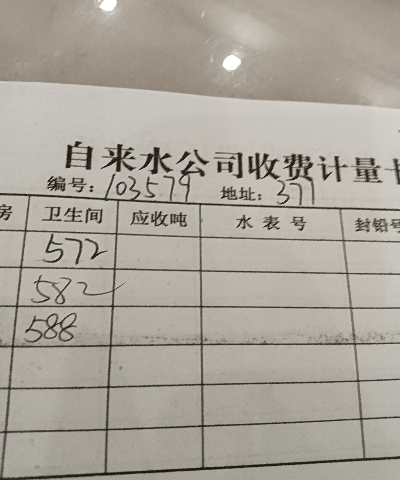 自来水公司收费计量卡
编号：103579 地址：377
房 卫生间 应收吨 水表号 封铅号
572
582
588